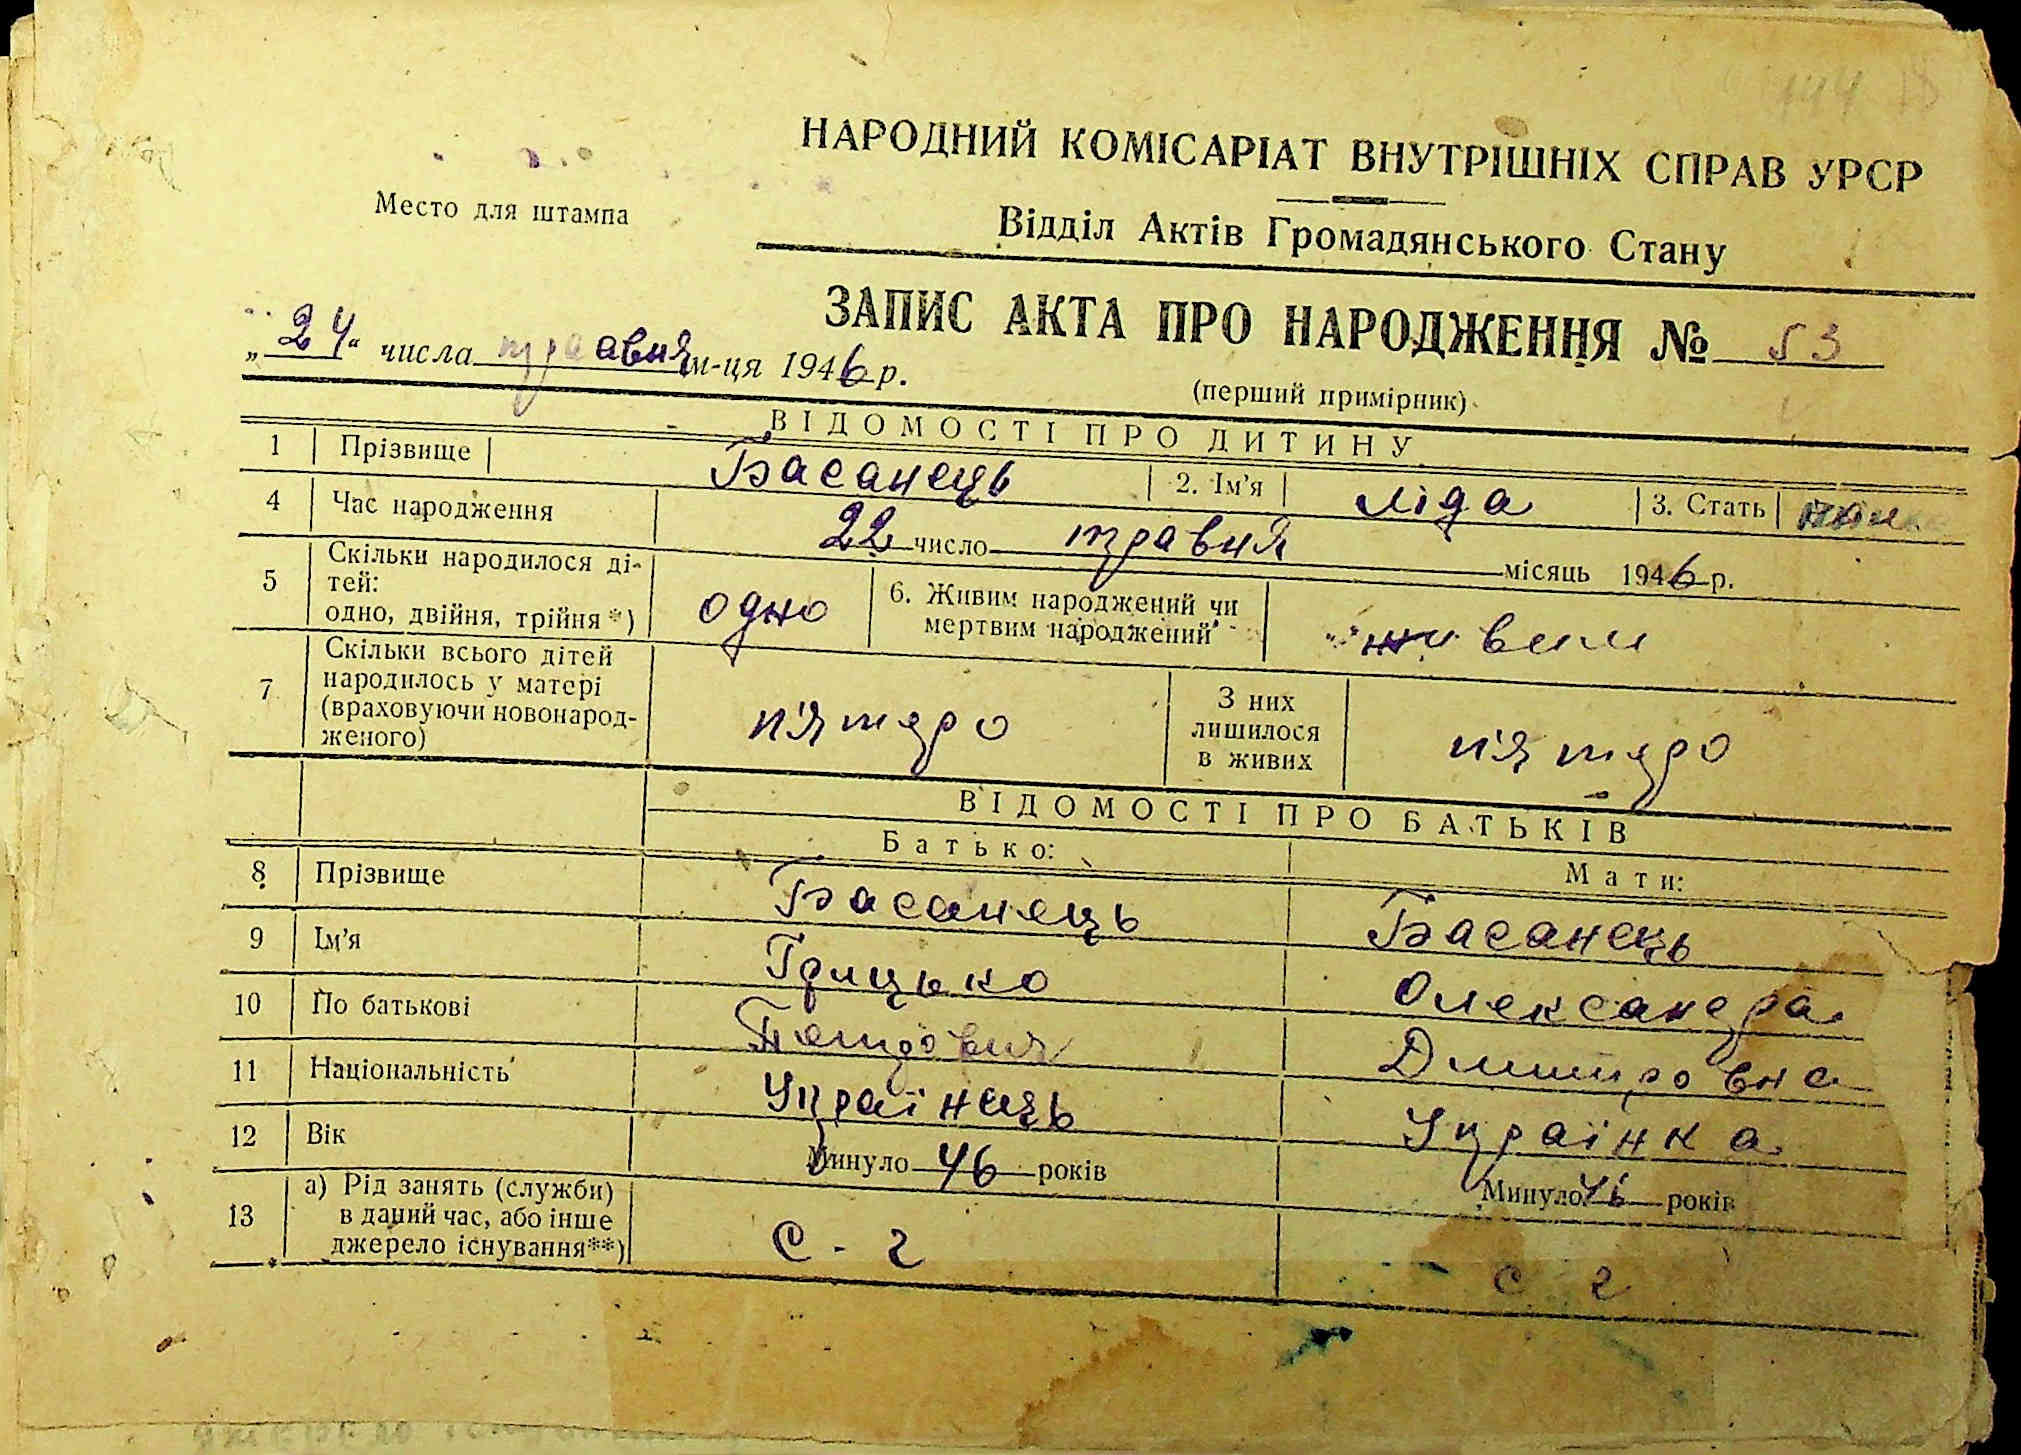 144
НАРОДНИЙ КОМІСАРІАТ ВНУТРІШНІХ СПРАВ УРСР
Место для штампа
Відділ Актів Громадянського Стану
ЗАПИС АКТА ПРО НАРОДЖЕННЯ № 53
„24“ числа травня м-ця 1946 р.
(перший примірник)
ВІДОМОСТІ ПРО ДИТИНУ
1 Прізвище Басанець 2. Ім'я Ліда 3. Стать
4 Час народження 22 число травня місяць 1946 р.
5 Скільки народилося ді-
тей:
одно, двійня, трійня*) одно 6. Живим народжений чи
мертвим народжений живим
7 Скільки всього дітей
народилось у матері
(враховуючи новонарод-
женого) п'ятеро З них
лишилося
в живих п'ятеро
ВІДОМОСТІ ПРО БАТЬКІВ
Батько: Мати:
8 Прізвище Басанець Басанець
9 Ім'я Грицько Олександра
10 По батькові Дмитровна
11 Національність Українець Українка
12 Вік Минуло 46 років Минуло 46 років
13 а) Рід занять (служби)
в даний час, або інше
джерело існування**) с - г с г